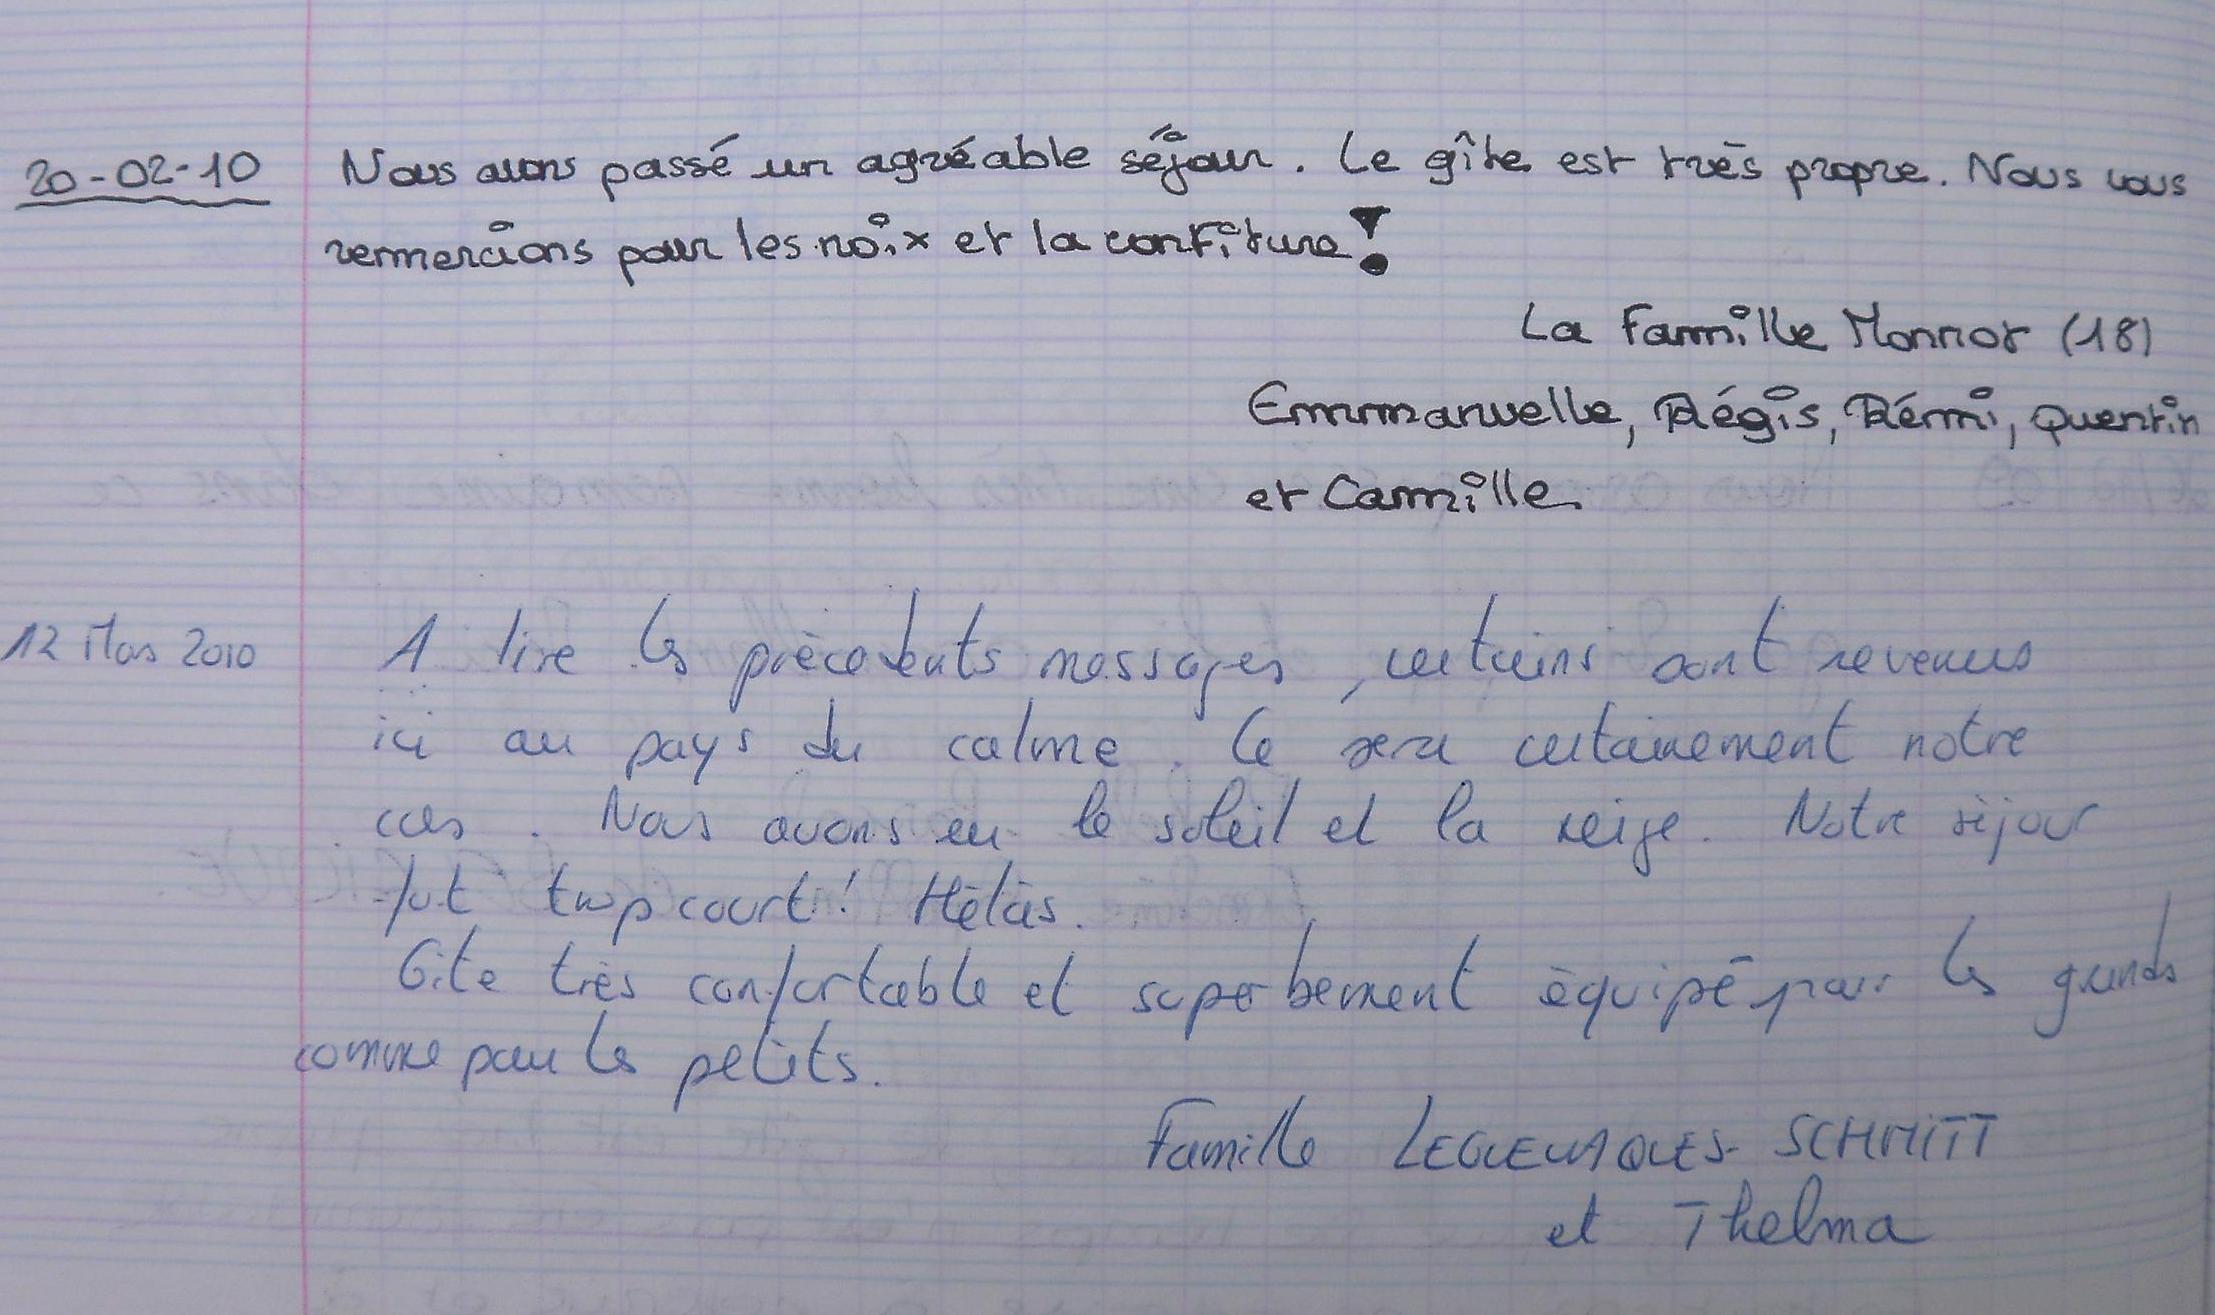 20-02-10 Nous avons passé un agréable séjour. Le gîte est très propre. Nous vous
remercions pour les noix et la confiture!
La Famille Monnot (18)
Emmanuelle, Régis, Rémi, Quentin
et Camille
12 Mars 2010 A lire les précédents messages, certains sont revenus
ici au pays du calme. Ce sera certainement notre
cas. Nous avons eu le soleil et la neige. Notre séjour
fut trop court! Hélàs.
Gite très confortable et superbement équipé pour les grands
comme pour les petits.
Famille SCHMITT
et Thelma